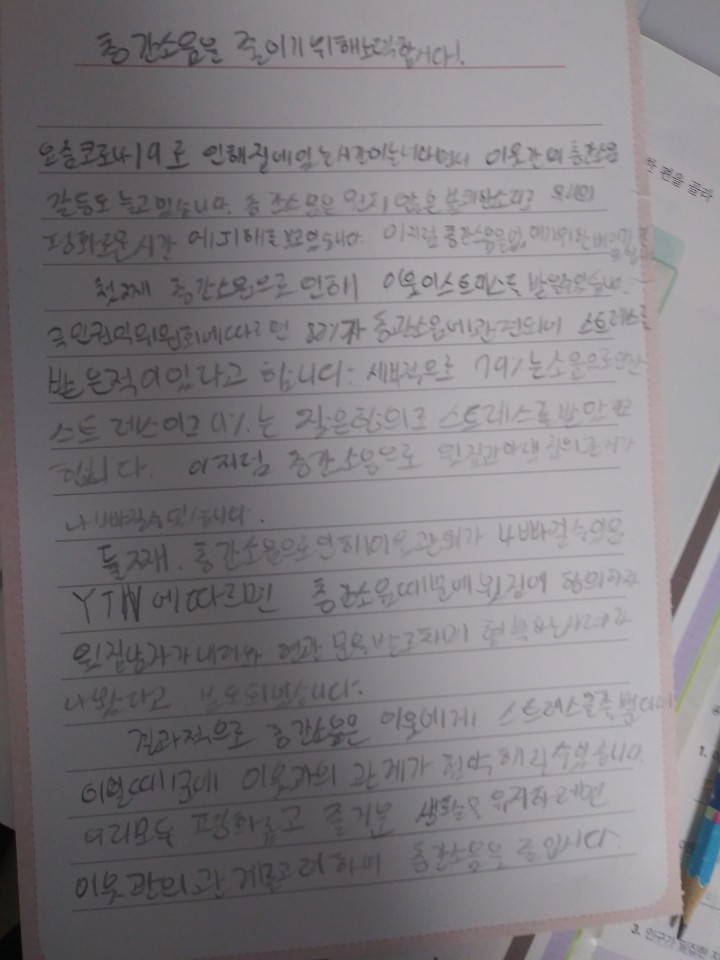 층간소음을 줄이기위해노력합시다!
요즘코로나19로 인해집에있는시간이늘어나면서 이웃간의층간소음
갈등도 늘고있습니다. 층간소음은 원치 않은 불쾌한소리로 우리의
평화로운시간 에피해를 보고있습니다. 이처럼 층간소음을
첫째 층간소음으로 인해 이웃이스트레스를 받을수있습니다.
국민권익위원회에따르면 층간소음에관련되어 스트레스를
받은적이있다고 합니다. 세부적으로 79%는소음으로인한
스트레스이고 9%는 잦은항의로 스트레스를받았다고
합니다. 이처럼 층간소음으로 윗집과아랫집의관계가
나빠질수있습니다.
둘째. 층간소음으로인해이웃관계가 나빠질수있음
YTN에따르면 층간소음때문에윗집에 항의하라
윗집남자가내려와 현관문을발로차며 협박하는사례가
나왔다고 보도되었습니다.
결과적으로 층간소음은 이웃에게 스트레스를줄뿐더러
이웃과의 관계가 수있습니다.
우리모두 평화롭고 즐거운 생활을 유지하려면
이웃과의관계를고려하여 층간소음을 줄입시다.
한 편을 골라
1.
3. 인구가 밀집한